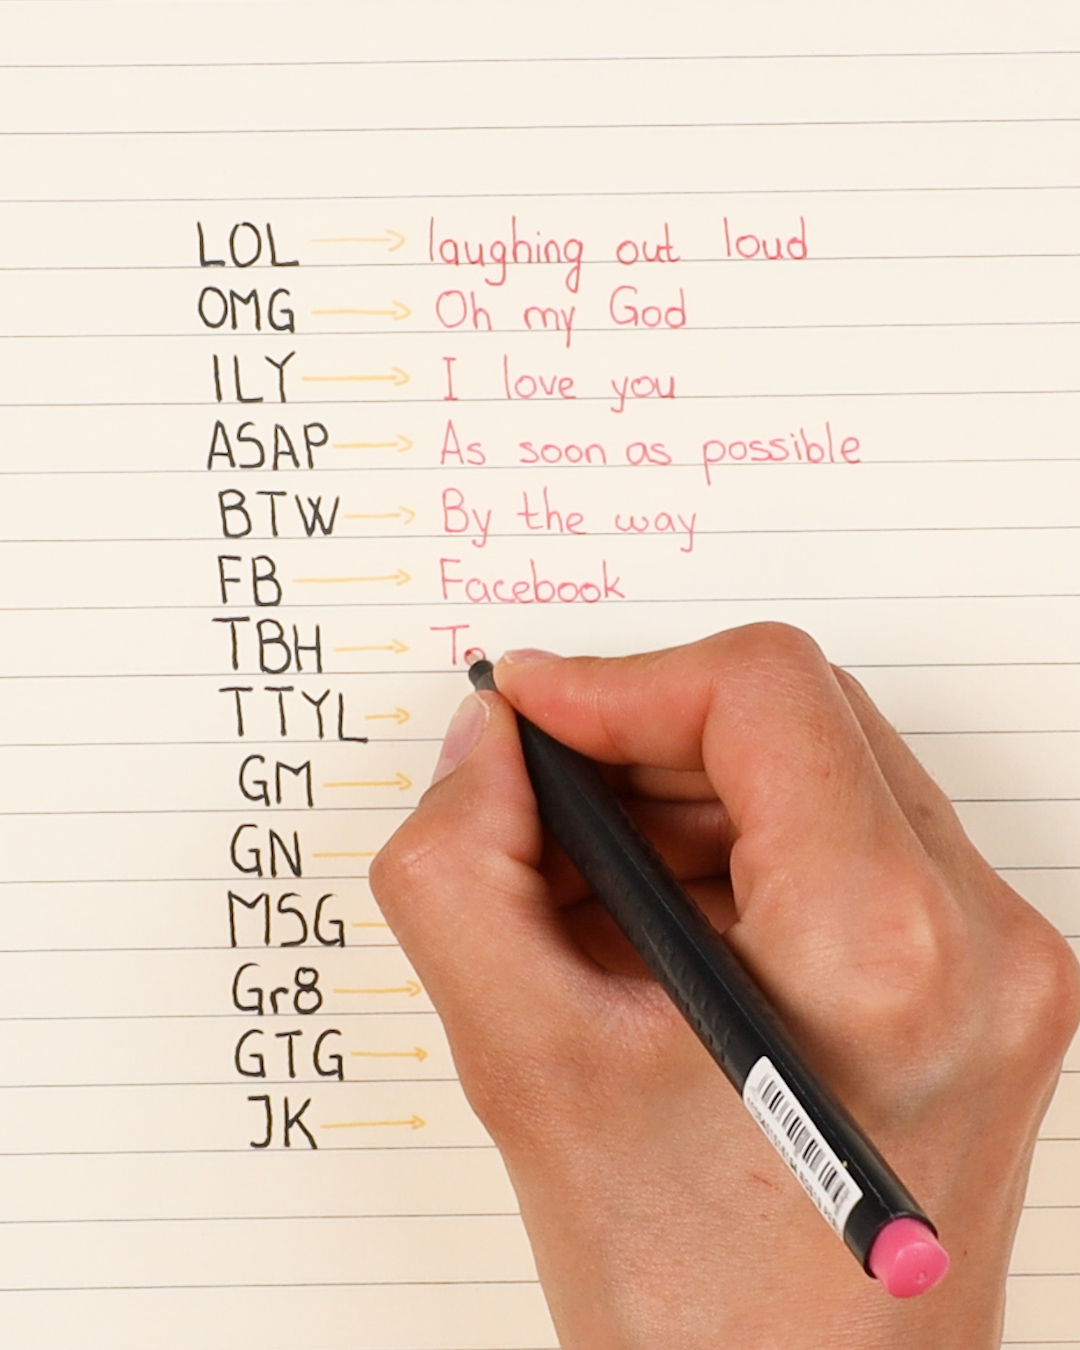 LOL → laughing out loud
OMG → Oh my God
ILY → I love you
ASAP → As soon as possible
BTW → By the way
FB → Facebook
TBH → To
TTYL →
GM →
GN
MSG
Gr8 →
GTG →
JK →